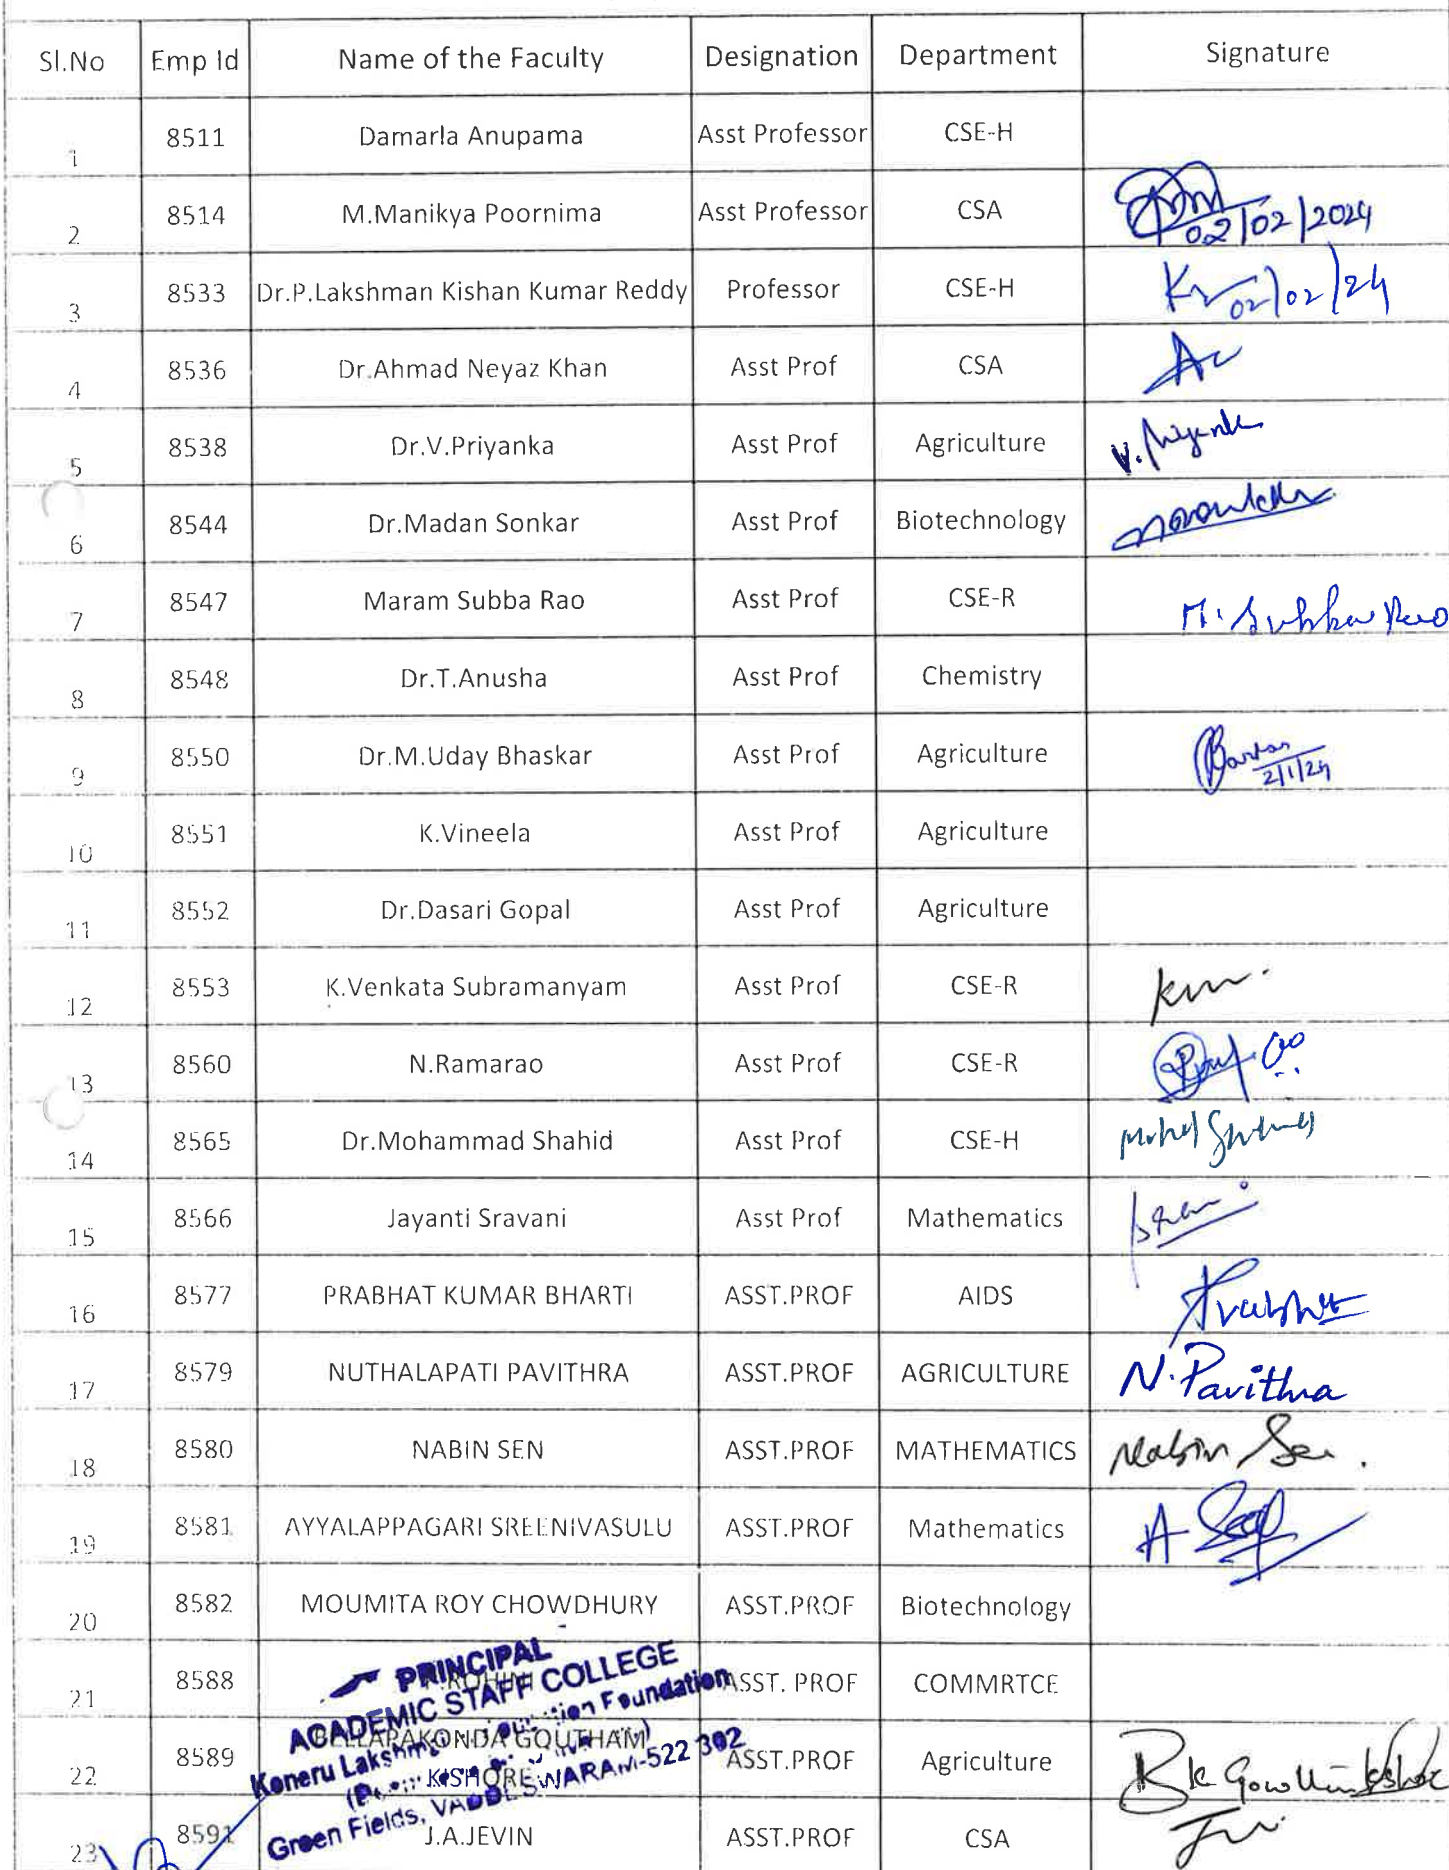 Sl.No Emp Id Name of the Faculty Designation Department Signature
1 8511 Damarla Anupama Asst Professor CSE-H
2 8514 M.Manikya Poornima Asst Professor CSA 02/02/2024
3 8533 Dr.P.Lakshman Kishan Kumar Reddy Professor CSE-H 02/02/24
4 8536 Dr.Ahmad Neyaz Khan Asst Prof CSA
5 8538 Dr.V.Priyanka Asst Prof Agriculture V.Priyanka
6 8544 Dr.Madan Sonkar Asst Prof Biotechnology
7 8547 Maram Subba Rao Asst Prof CSE-R M. Subba Rao
8 8548 Dr.T.Anusha Asst Prof Chemistry
9 8550 Dr.M.Uday Bhaskar Asst Prof Agriculture 2/1/24
10 8551 K.Vineela Asst Prof Agriculture
11 8552 Dr.Dasari Gopal Asst Prof Agriculture
12 8553 K.Venkata Subramanyam Asst Prof CSE-R
13 8560 N.Ramarao Asst Prof CSE-R
14 8565 Dr.Mohammad Shahid Asst Prof CSE-H
15 8566 Jayanti Sravani Asst Prof Mathematics
16 8577 PRABHAT KUMAR BHARTI ASST.PROF AIDS Prabhat
17 8579 NUTHALAPATI PAVITHRA ASST.PROF AGRICULTURE N.Pavithra
18 8580 NABIN SEN ASST.PROF MATHEMATICS Nabin Sen.
19 8581 AYYALAPPAGARI SREENIVASULU ASST.PROF Mathematics
20 8582 MOUMITA ROY CHOWDHURY ASST.PROF Biotechnology
21 8588 ROHINI ASST. PROF COMMRTCE
22 8589 GOUTHAM KISHORE ASST.PROF Agriculture
23 8591 J.A.JEVIN ASST.PROF CSA
PRINCIPAL
ACADEMIC STAFF COLLEGE
Koneru Foundation
Green Fields, VADDESWARAM-522 302